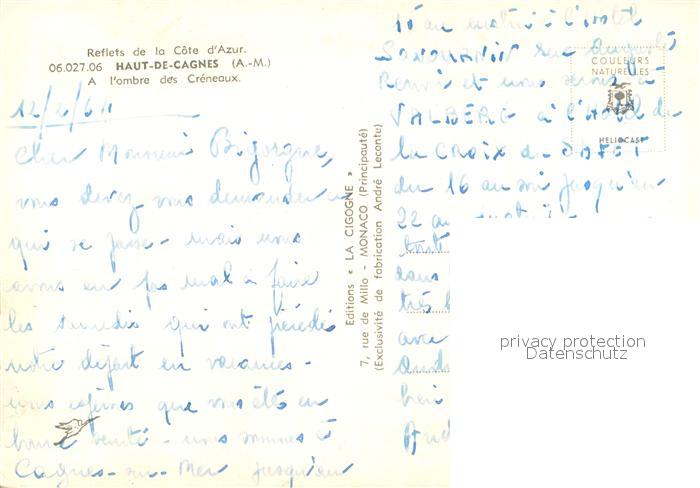 Reflets de la Côte d'Azur.
06.027.06 HAUT-DE-CAGNES (A.-M.)
A l'ombre des Créneaux.
12/2/64
Cher Monsieur Bigorgne,
vous devez vous demander ce
qui se passe - mais nous
avons eu pas mal à faire
les samedis qui ont précédé
notre départ en vacances -
nous espérons que vous êtes en
bonne santé - nous sommes à
Cagnes-sur-Mer jusqu'au
Editions « LA CIGOGNE »
7, rue de Millo - MONACO (Principauté)
(Exclusivité de fabrication André Leconte)
16 au matin à l'Hôtel
SAVOURNIN rue Auguste
Renoir et nous serons à
VALBERG à l'Hôtel de
la CROIX du
du 16 au soir jusqu'au
22 au
tout
dans
très
avec
bien
COULEURS
NATURELLES
HELIOCAST
privacy protection
Datenschutz